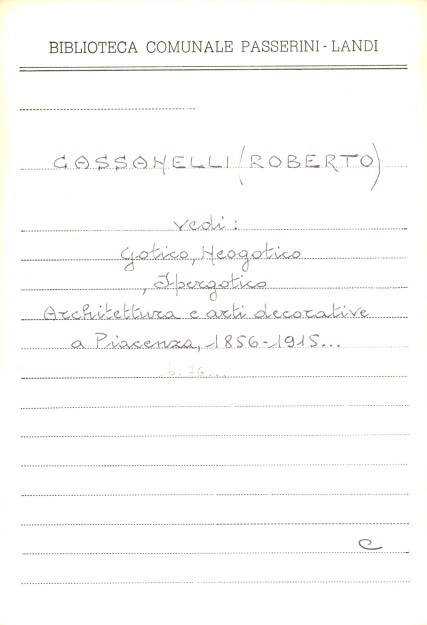 BIBLIOTECA COMUNALE PASSERINI - LANDI
CASSANELLI (ROBERTO)
vedi:
Gotico, Neogotico
, Ipergotico
Architettura e arti decorative
a Piacenza, 1856-1915...
p. 76...
C